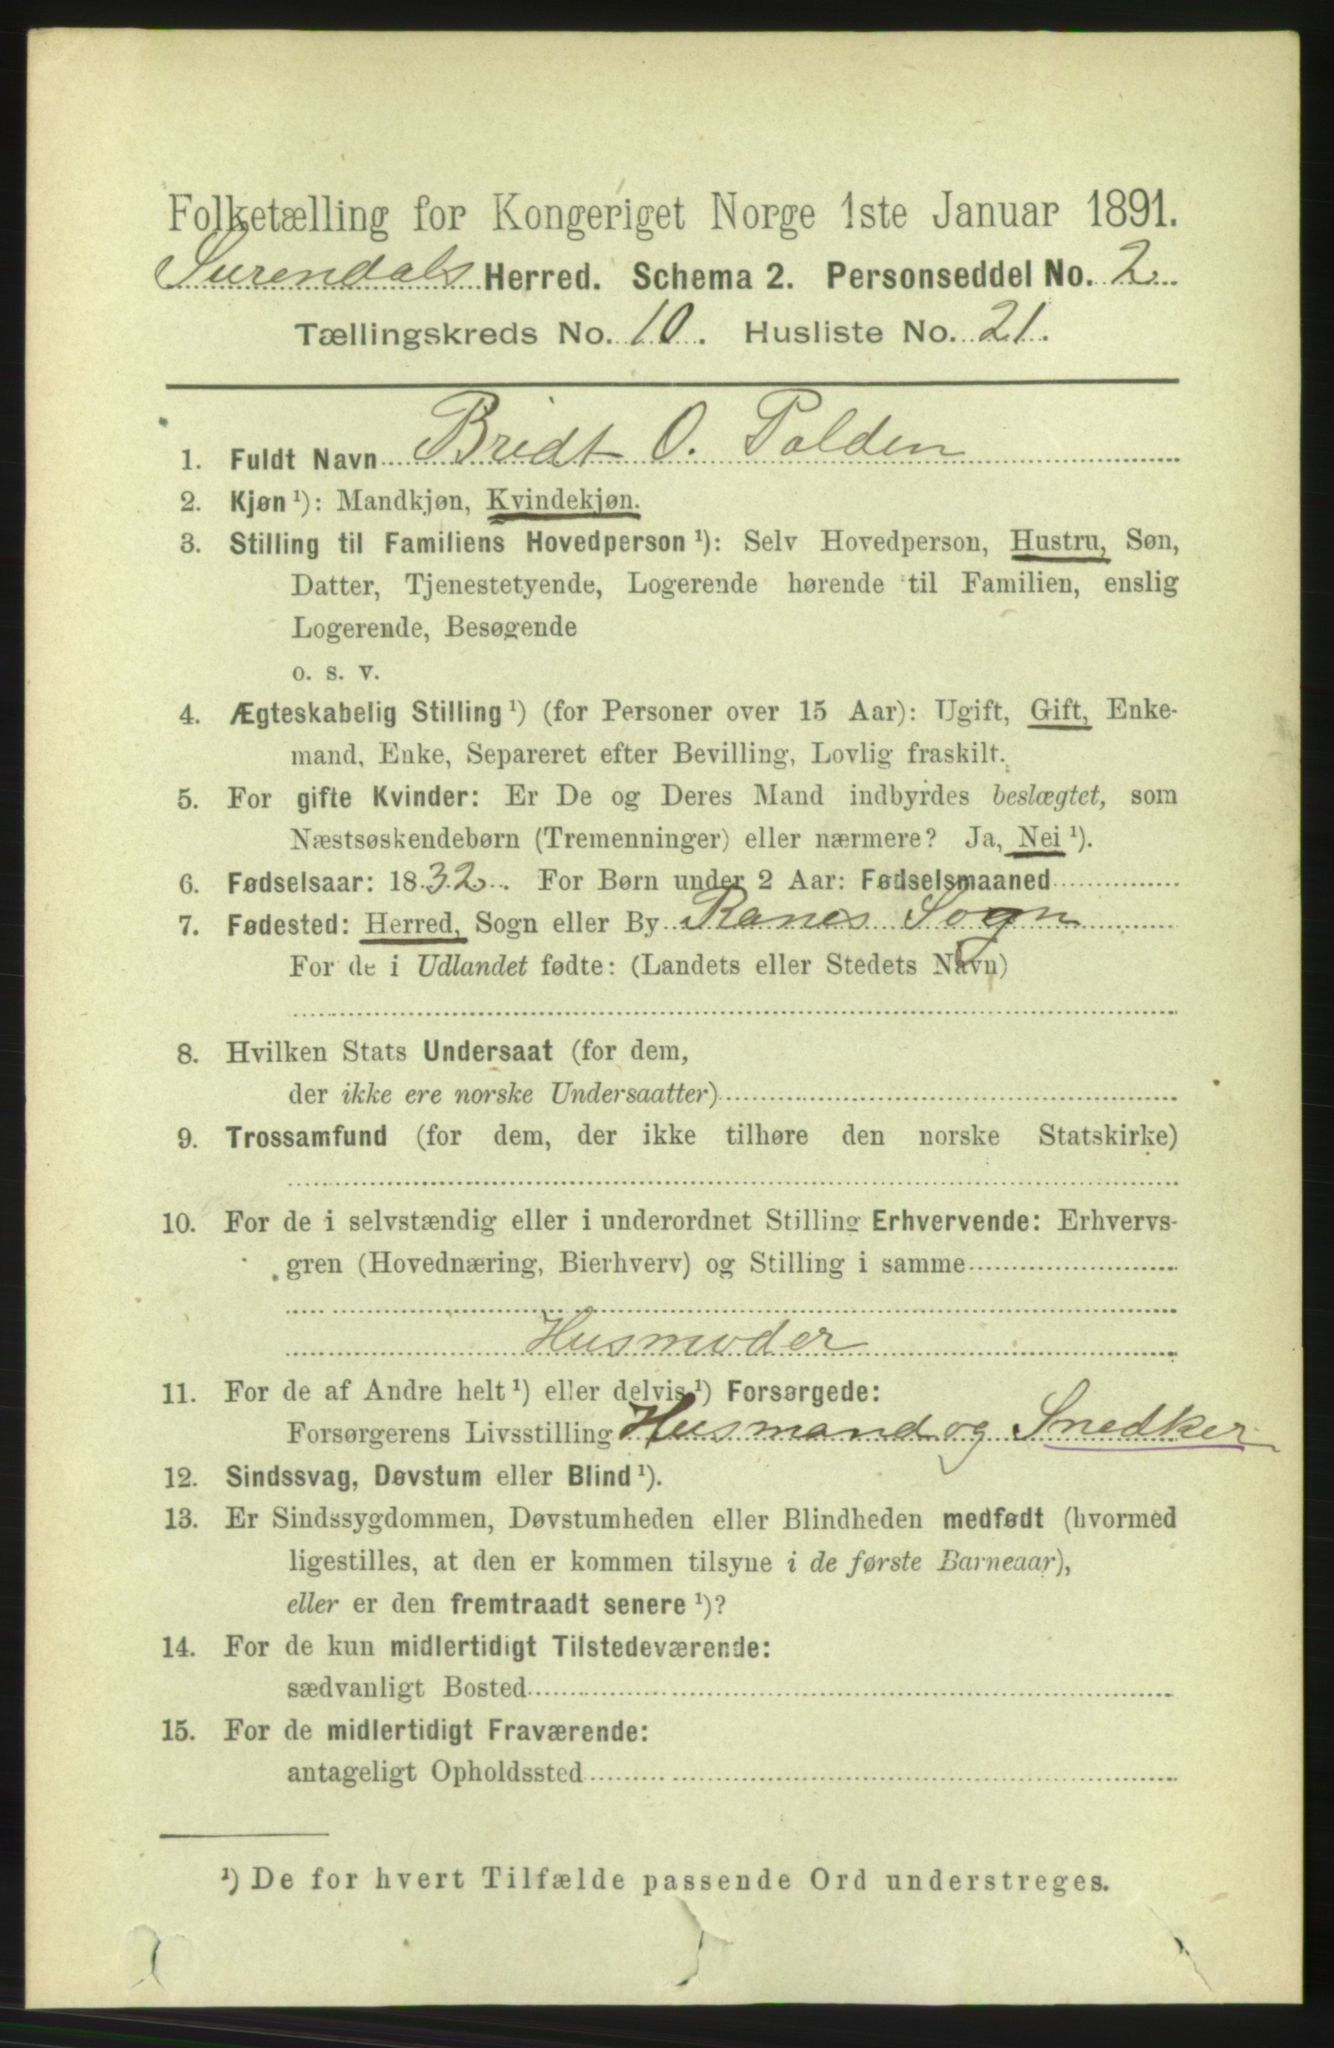 Folketælling for Kongeriget Norge 1ste Januar 1891.
Surendals Herred. Schema 2. Personseddel No. 2
Tællingskreds No. 10. Husliste No. 21.
1. Fuldt Navn Bridt O. Polden
2. Kjøn ¹): Mandkjøn, Kvindekjøn.
3. Stilling til Familiens Hovedperson ¹): Selv Hovedperson, Hustru, Søn,
Datter, Tjenestetyende, Logerende hørende til Familien, enslig
Logerende, Besøgende
o. s. v.
4. Ægteskabelig Stilling ¹) (for Personer over 15 Aar): Ugift, Gift, Enke-
mand, Enke, Separeret efter Bevilling, Lovlig fraskilt.
5. For gifte Kvinder: Er De og Deres Mand indbyrdes beslægtet, som
Næstsøskendebørn (Tremenninger) eller nærmere? Ja, Nei ¹).
6. Fødselsaar: 1832. For Børn under 2 Aar: Fødselsmaaned
7. Fødested: Herred, Sogn eller By Ranes Sogn
For de i Udlandet fødte: (Landets eller Stedets Navn)
8. Hvilken Stats Undersaat (for dem,
der ikke ere norske Undersaatter)
9. Trossamfund (for dem, der ikke tilhøre den norske Statskirke)
10. For de i selvstændig eller i underordnet Stilling Erhvervende: Erhvervs-
gren (Hovednæring, Bierhverv) og Stilling i samme
Husmoder
11. For de af Andre helt ¹) eller delvis ¹) Forsørgede:
Forsørgerens Livsstilling Husmand og Snedker
12. Sindssvag, Døvstum eller Blind ¹).
13. Er Sindssygdommen, Døvstumheden eller Blindheden medfødt (hvormed
ligestilles, at den er kommen tilsyne i de første Barneaar),
eller er den fremtraadt senere ¹)?
14. For de kun midlertidigt Tilstedeværende:
sædvanligt Bosted
15. For de midlertidigt Fraværende:
antageligt Opholdssted
¹) De for hvert Tilfælde passende Ord understreges.